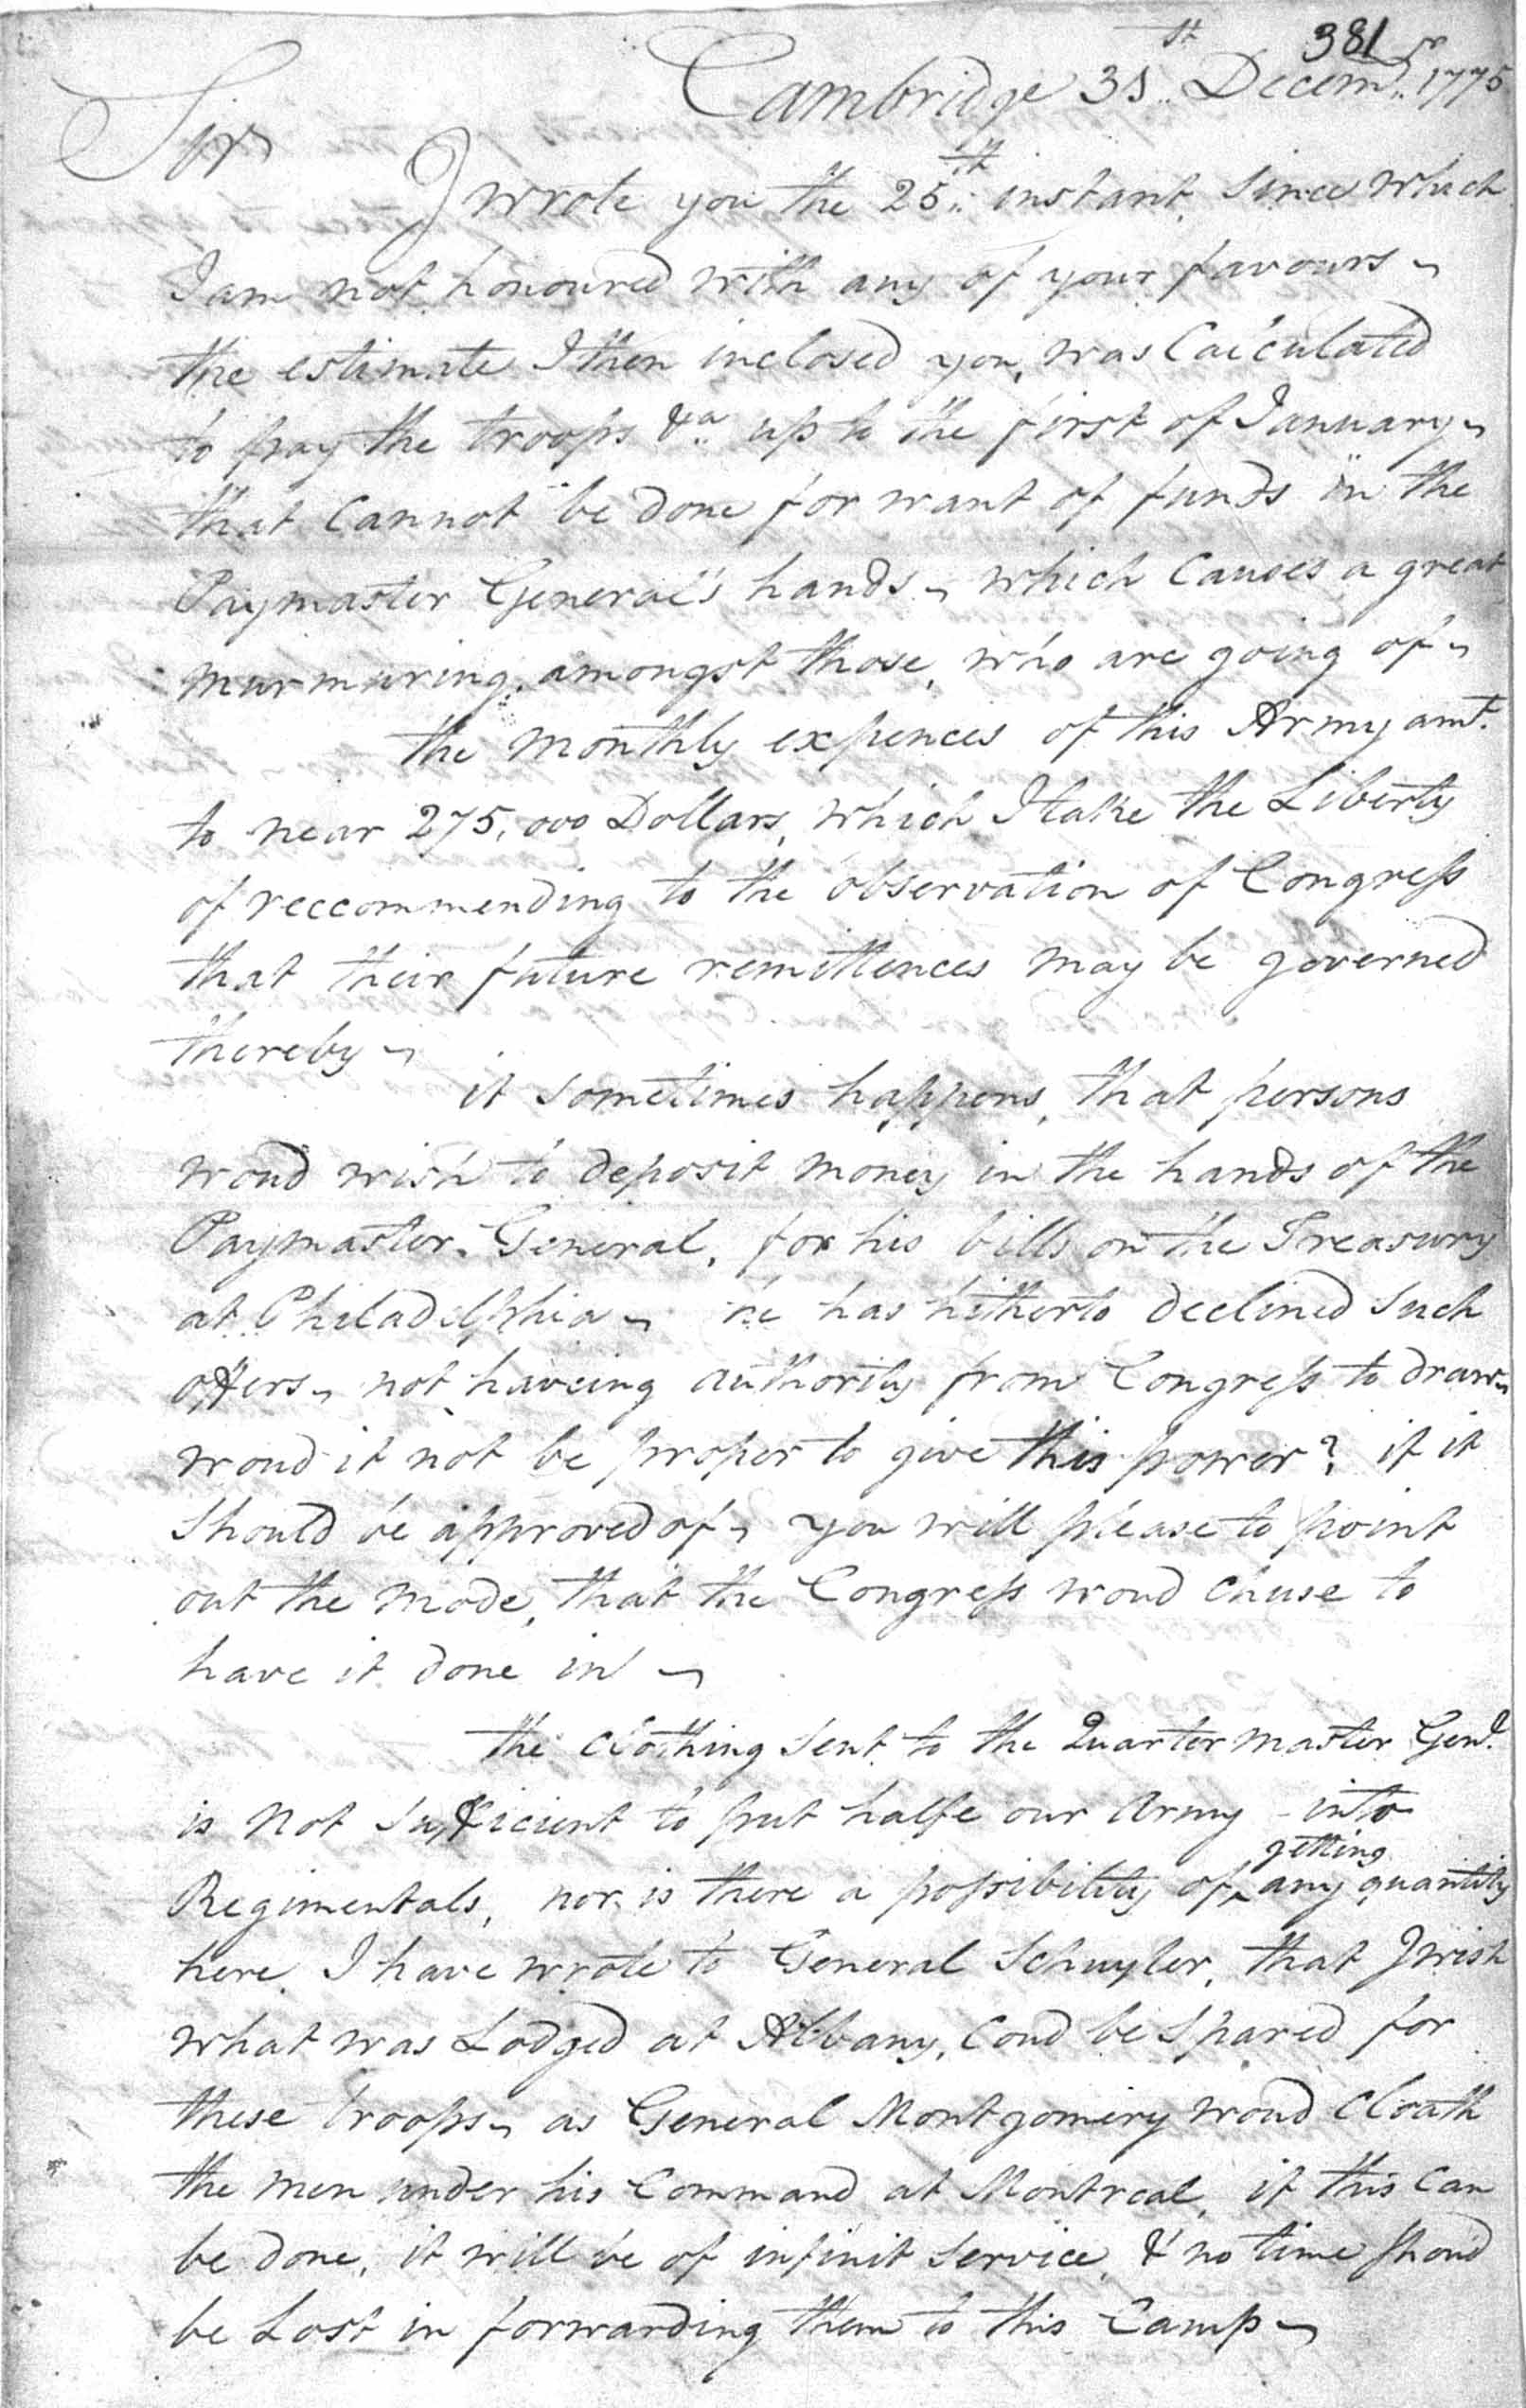 381
Cambridge 31st Decemr 1775
Sir
I wrote you the 25th instant, since which
I am not honoured with any of your favours ~
the estimate I then inclosed you, was Calculated
to pay the troops &a up to the first of January ~
that Cannot be done for want of funds in the
Paymaster General's hands ~ which Causes a great
murmuring, amongst those, who are going of ~
the monthly expences of this Army amt.
to near 275,000 Dollars, which I take the Liberty
of reccommending to the observation of Congress
that their future remittences may be governed
thereby ~
it sometimes happens, that persons
woud wish to deposit money in the hands of the
Paymaster General, for his bills on the Treasury
at Philadelphia ~ he has hitherto declined such
offers ~ not haveing authority from Congress to draw ~
woud it not be proper to give this power? if it
should be approved of ~ you will please to point
out the mode, that the Congress woud chuse to
have it done in ~
the Clothing sent to the Quarter master Genl.
is not sufficient to put halfe our army into
Regimentals, nor is there a possibility of getting any quantity
here. I have wrote to General Schuyler, that I wish
what was Lodged at Albany, Coud be spared for
these troops ~ as General Montgomery woud Cloath
the men under his Command at Montreal, if this Can
be done, it will be of infinit service, & no time shoud
be Lost in forwarding them to this Camp ~